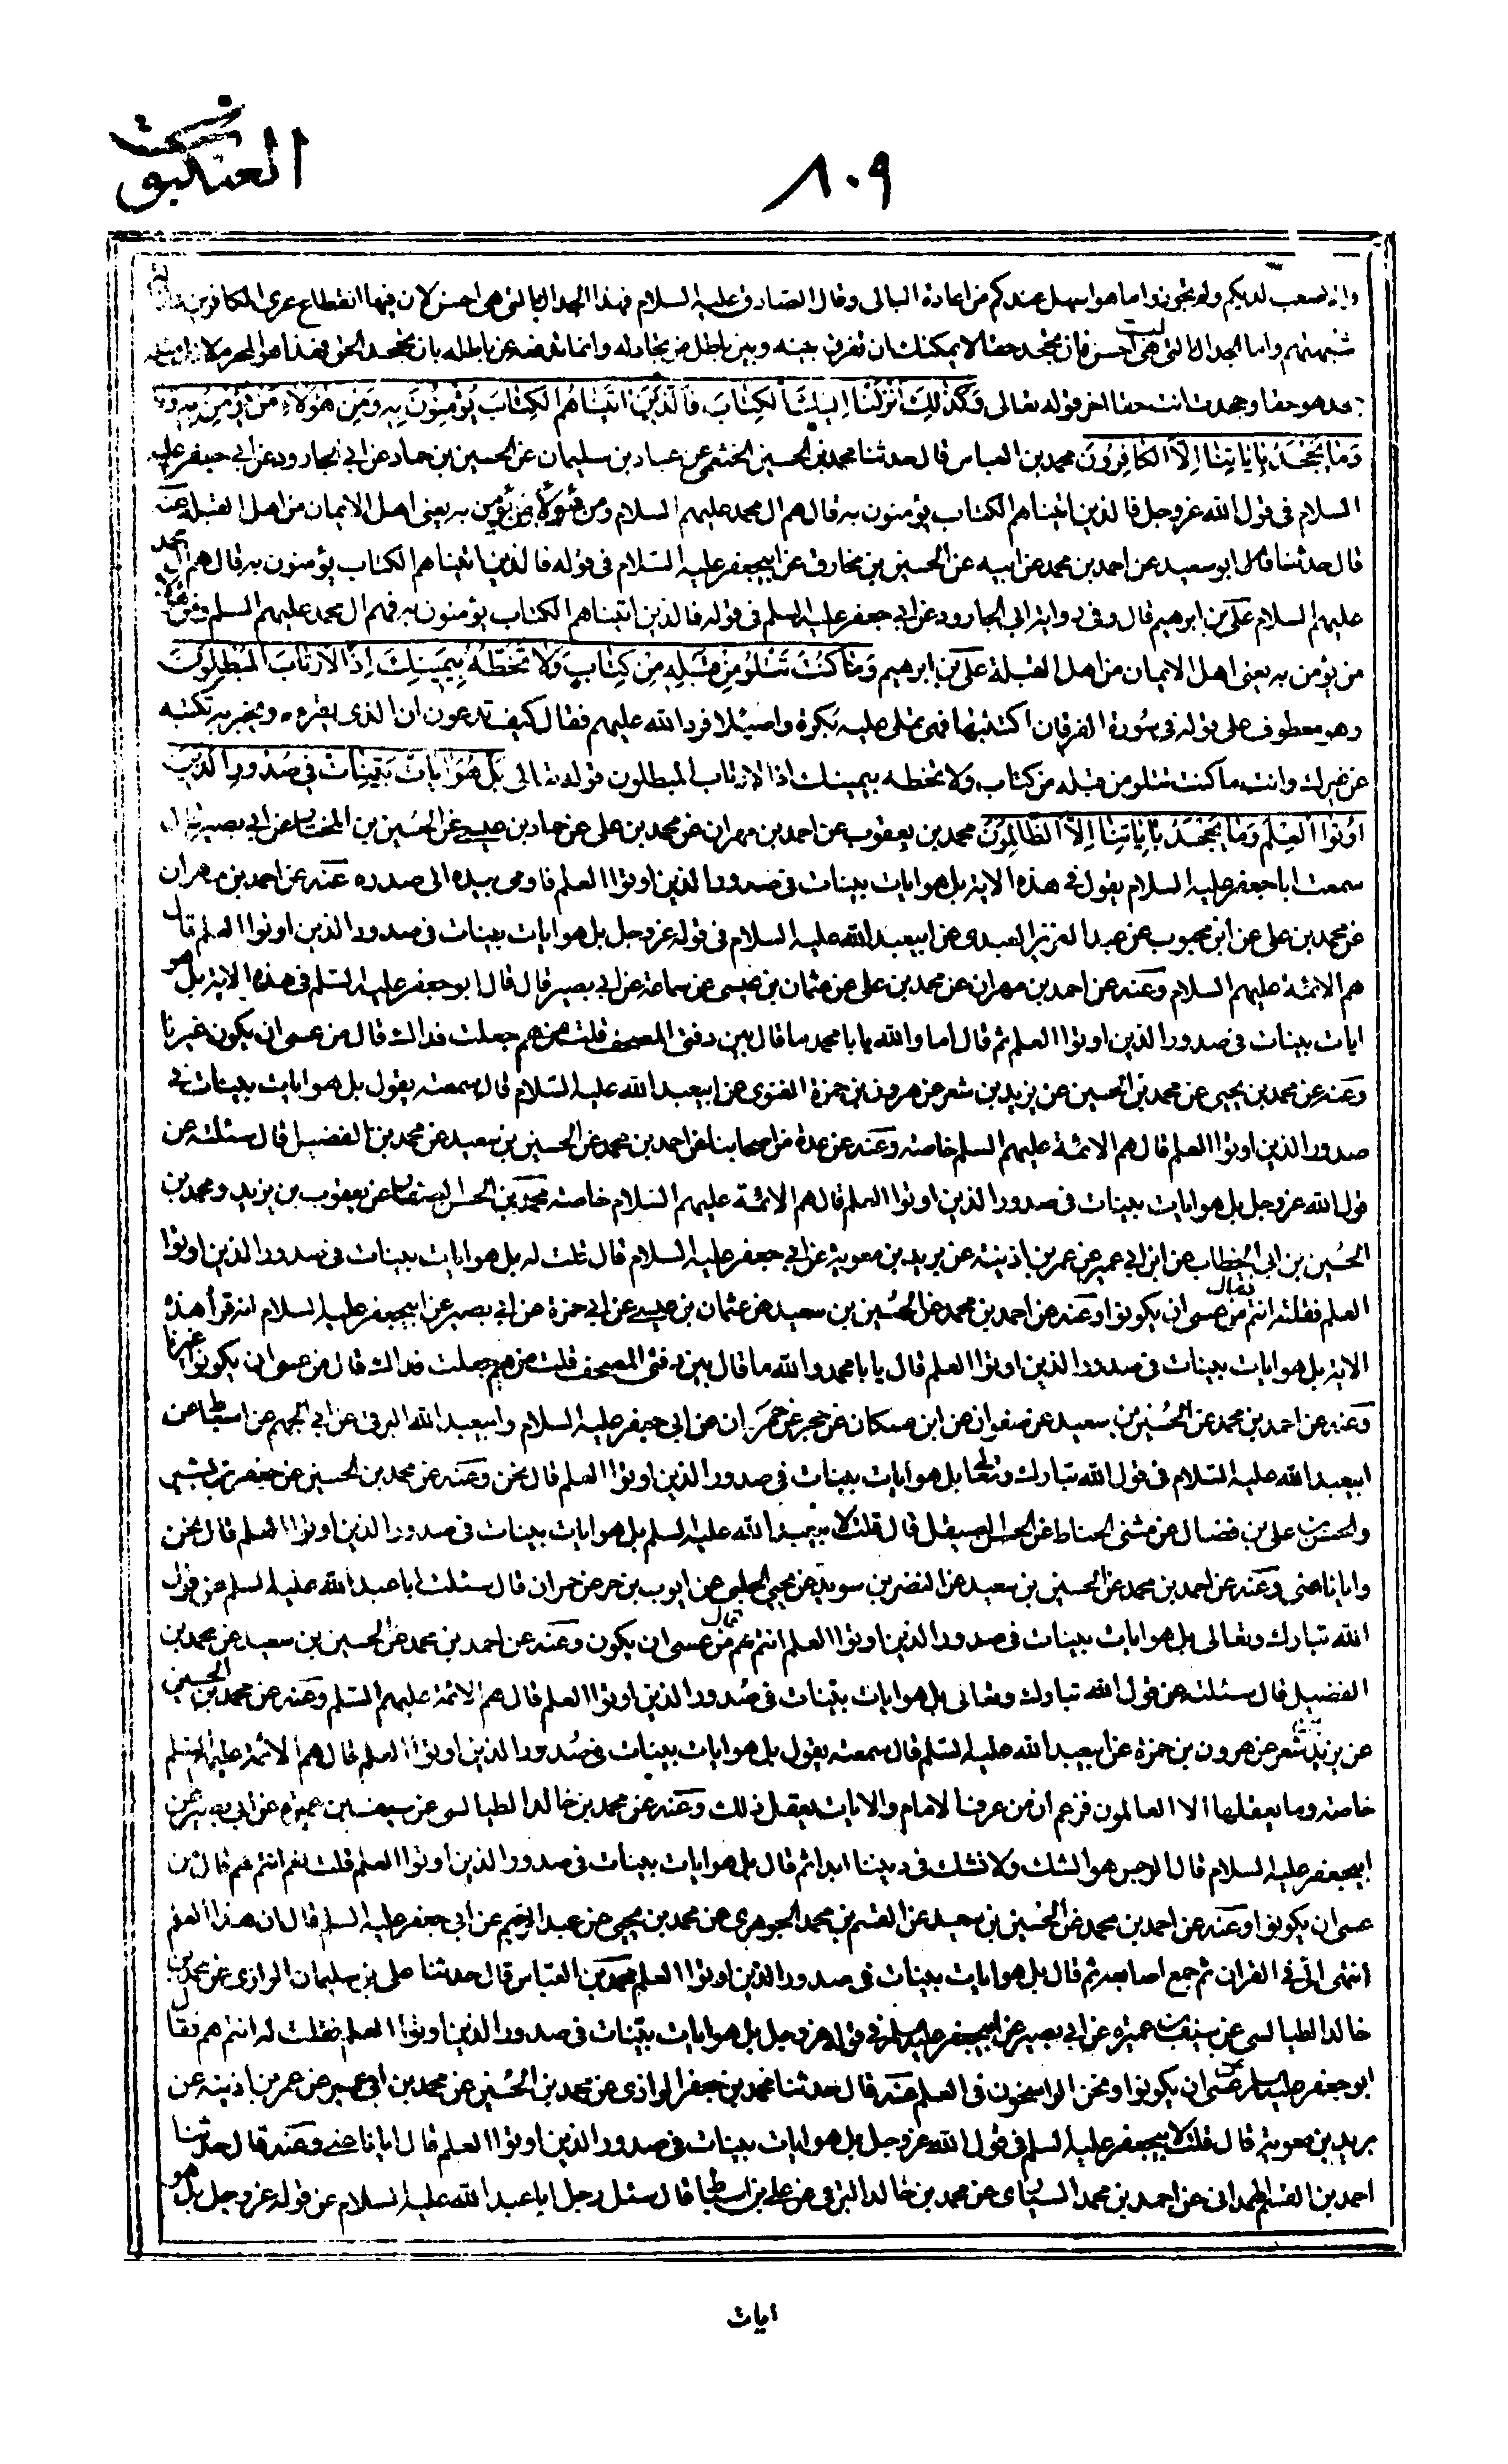 العنكبوت
٨٠٩
واصعب لديكم ولم تجوزوا ما هو اسهل عندكم من اعادة البالى وقال الصادق عليه السلام فهذا الجدال بالتى هى احسن لان فيها انقطاع عرى الكافرين
شبهتهم واما الجدال بالتى ليست هى احسن فان تجحد حقا لا يمكنك ان تفرق بينه وبين باطل من تجادله وانما تدفعه عن باطله بان تجحد الحق فهذا هو المحرم لانك مثله
جحد هو حقا وجحدت انت حقا اخر قوله تعالى وَكَذٰلِكَ اَنْزَلْنَا اِلَيْكَ الْكِتَابَ فَالَّذِينَ اٰتَيْنَاهُمُ الْكِتَابَ يُؤْمِنُونَ بِهِ وَمِنْ هٰؤُلَاءِ مَنْ يُؤْمِنُ بِهِ
وَمَا يَجْحَدُ بِاٰيَاتِنَا اِلَّا الْكَافِرُونَ محمد بن العباس قال حدثنا محمد بن الحسين الخثعمى عن عباد بن سليمان عن الحسين بن حماد عن ابى الجارود عن ابى جعفر عليه
السلام فى قول الله عز وجل فالذين اتيناهم الكتاب يؤمنون به قال هم ال محمد عليهم السلام ومن هؤلاء من يؤمن به يعنى اهل الايمان من اهل القبلة عنه
قال حدثنا ابو سعيد عن احمد بن محمد عن ابيه عن الحسين بن مخارق عن ابيجعفر عليه السلام فى قوله فالذين اتيناهم الكتاب يؤمنون به قال هم ال محمد
عليهم السلام على بن ابرهيم قال وفى رواية ابى الجارود عن ابى جعفر عليه السلم فى قوله فالذين اتيناهم الكتاب يؤمنون به فهم ال محمد عليهم السلم ومن هؤلاء
من يؤمن به يعنى اهل الايمان من اهل القبلة على بن ابرهيم وَمَا كُنْتَ تَتْلُو مِنْ قَبْلِهِ مِنْ كِتَابٍ وَلَا تَخُطُّهُ بِيَمِينِكَ اِذًا لَارْتَابَ الْمُبْطِلُونَ
وهو معطوف على قوله فى سورة الفرقان اكتتبها فهى تملى عليه بكرة واصيلا فرد الله عليهم فقال كيف تدعون ان الذى يقرءه ويخبر به تكتبه
عن غيرك وانت ما كنت تتلو من قبله من كتاب ولا تخطه بيمينك اذا لارتاب المبطلون قوله تعالى بَلْ هُوَ اٰيَاتٌ بَيِّنَاتٌ فِى صُدُورِ الَّذِينَ
اُوتُوا الْعِلْمَ وَمَا يَجْحَدُ بِاٰيَاتِنَا اِلَّا الظَّالِمُونَ محمد بن يعقوب عن احمد بن مهران عن محمد بن على عن حماد بن عيسى عن الحسين بن المختار عن ابى بصير قال
سمعت اباجعفر عليه السلام يقول فى هذه الاية بل هو ايات بينات فى صدور الذين اوتوا العلم فاومى بيده الى صدره عنه عن احمد بن مهران
عن محمد بن على عن ابن محبوب عن عبد العزيز العبدى عن ابيعبد الله عليه السلام فى قوله عز وجل بل هو ايات بينات فى صدور الذين اوتوا العلم قال
هم الائمة عليهم السلام وعنه عن احمد بن مهران عن محمد بن على عن عثمان بن عيسى عن سماعة عن ابى بصير قال قال ابو جعفر عليه السلم فى هذه الاية بل هو
ايات بينات فى صدور الذين اوتوا العلم ثم قال اما والله يا با محمد ما قال بين دفتى المصحف قلت من هم جعلت فداك قال من عسى ان يكون غيرنا
وعنه عن محمد بن يحيى عن محمد بن الحسين عن يزيد بن شعر عن هرون بن حمزة الغنوى عن ابيعبد الله عليه السلام قال سمعته يقول بل هو ايات بينات فى
صدور الذين اوتوا العلم قال هم الائمة عليهم السلم خاصة وعنه عن عدة من اصحابنا عن احمد بن محمد عن الحسين بن سعيد عن محمد بن الفضيل قال سئلته عن
قول الله عز وجل بل هو ايات بينات فى صدور الذين اوتوا العلم قال هم الائمة عليهم السلام خاصة محمد بن الحسن الصفار عن يعقوب بن يزيد ومحمد بن
الحسين بن ابى الخطاب عن ابن ابى عمير عن عمر بن اذينة عن بريد بن معوية عن ابى جعفر عليه السلام قال قلت له بل هو ايات بينات فى صدور الذين اوتوا
العلم فقلت انتم فقال من عسى ان يكونوا وعنه عن احمد بن محمد عن الحسين بن سعيد عن عثمان بن عيسى عن ابى حمزة عن ابى بصير عن ابيجعفر عليه السلام انه قرأ هذه
الاية بل هو ايات بينات فى صدور الذين اوتوا العلم قال يا با محمد والله ما قال بين دفتى المصحف قلت من هم جعلت فداك قال من عسى ان يكونوا غيرنا
وعنه عن احمد بن محمد عن الحسين بن سعيد عن صفوان عن ابن مسكان عن حجر عن حمران عن ابى جعفر عليه السلام وابيعبد الله البرقى عن ابى الجهم عن اسباط عن
ابيعبد الله عليه السلام فى قول الله تبارك وتعالى بل هو ايات بينات فى صدور الذين اوتوا العلم قال نحن وعنه عن محمد بن الحسين عن جعفر بن بشير
والحسن بن على بن فضال عن مثنى الحناط عن الحسن الصيقل قال قلت لابيعبد الله عليه السلم بل هو ايات بينات فى صدور الذين اوتوا العلم قال نحن
وايانا عنى وعنه عن احمد بن محمد عن الحسين بن سعيد عن النضر بن سويد عن يحيى الحلبى عن ايوب بن حر عن حمران قال سئلت ابا عبد الله عليه السلم عن قول
الله تبارك وتعالى بل هو ايات بينات فى صدور الذين اوتوا العلم انتم هم قال من عسى ان يكون وعنه عن احمد بن محمد عن الحسين بن سعيد عن محمد بن
الفضيل قال سئلته عن قول الله تبارك وتعالى بل هو ايات بينات فى صدور الذين اوتوا العلم قال هم الائمة عليهم السلم وعنه عن محمد بن الحسين
عن يزيد شعر عن هرون بن حمزة عن ابيعبد الله عليه السلم قال سمعته يقول بل هو ايات بينات فى صدور الذين اوتوا العلم قال هم الائمة عليهم السلم
خاصة وما يعقلها الا العالمون فزعم ان من عرف الامام والايات يعقل ذلك وعنه عن محمد بن خالد الطيالسى عن سيف بن عميرة عن ابى بصير عن
ابيجعفر عليه السلام قال الرجس هو الشك ولا نشك فى ديننا ابدا ثم قال بل هو ايات بينات فى صدور الذين اوتوا العلم قلت نعم انتم هم قال من
عسى ان يكونوا وعنه عن احمد بن محمد عن الحسين بن سعيد عن القسم بن محمد الجوهرى عن محمد بن يحيى عن عبد الرحيم عن ابى جعفر عليه السلم قال ان هذا العلم
انتهى الى فى القران ثم جمع اصابعه ثم قال بل هو ايات بينات فى صدور الذين اوتوا العلم محمد بن العباس قال حدثنا على بن سليمان الرازى عن محمد بن
خالد الطيالسى عن سيف بن عميرة عن ابى بصير عن ابيجعفر عليه السلم فى قوله عز وجل بل هو ايات بينات فى صدور الذين اوتوا العلم فقلت له انتم هم فقال
ابو جعفر عليه السلم من عسى ان يكونوا ونحن الراسخون فى العلم عنه قال حدثنا محمد بن جعفر الرازى عن محمد بن الحسين عن محمد بن ابى عمير عن عمر بن اذينة عن
بريد بن معوية قال قلت لابيجعفر عليه السلم فى قول الله عز وجل بل هو ايات بينات فى صدور الذين اوتوا العلم قال ايانا عنى وعنه قال حدثنا
احمد بن القسم الهمدانى عن احمد بن محمد السيارى عن محمد بن خالد البرقى عن على بن اسباط قال سئل رجل ابا عبد الله عليه السلام عن قوله عز وجل بل هو
ايات